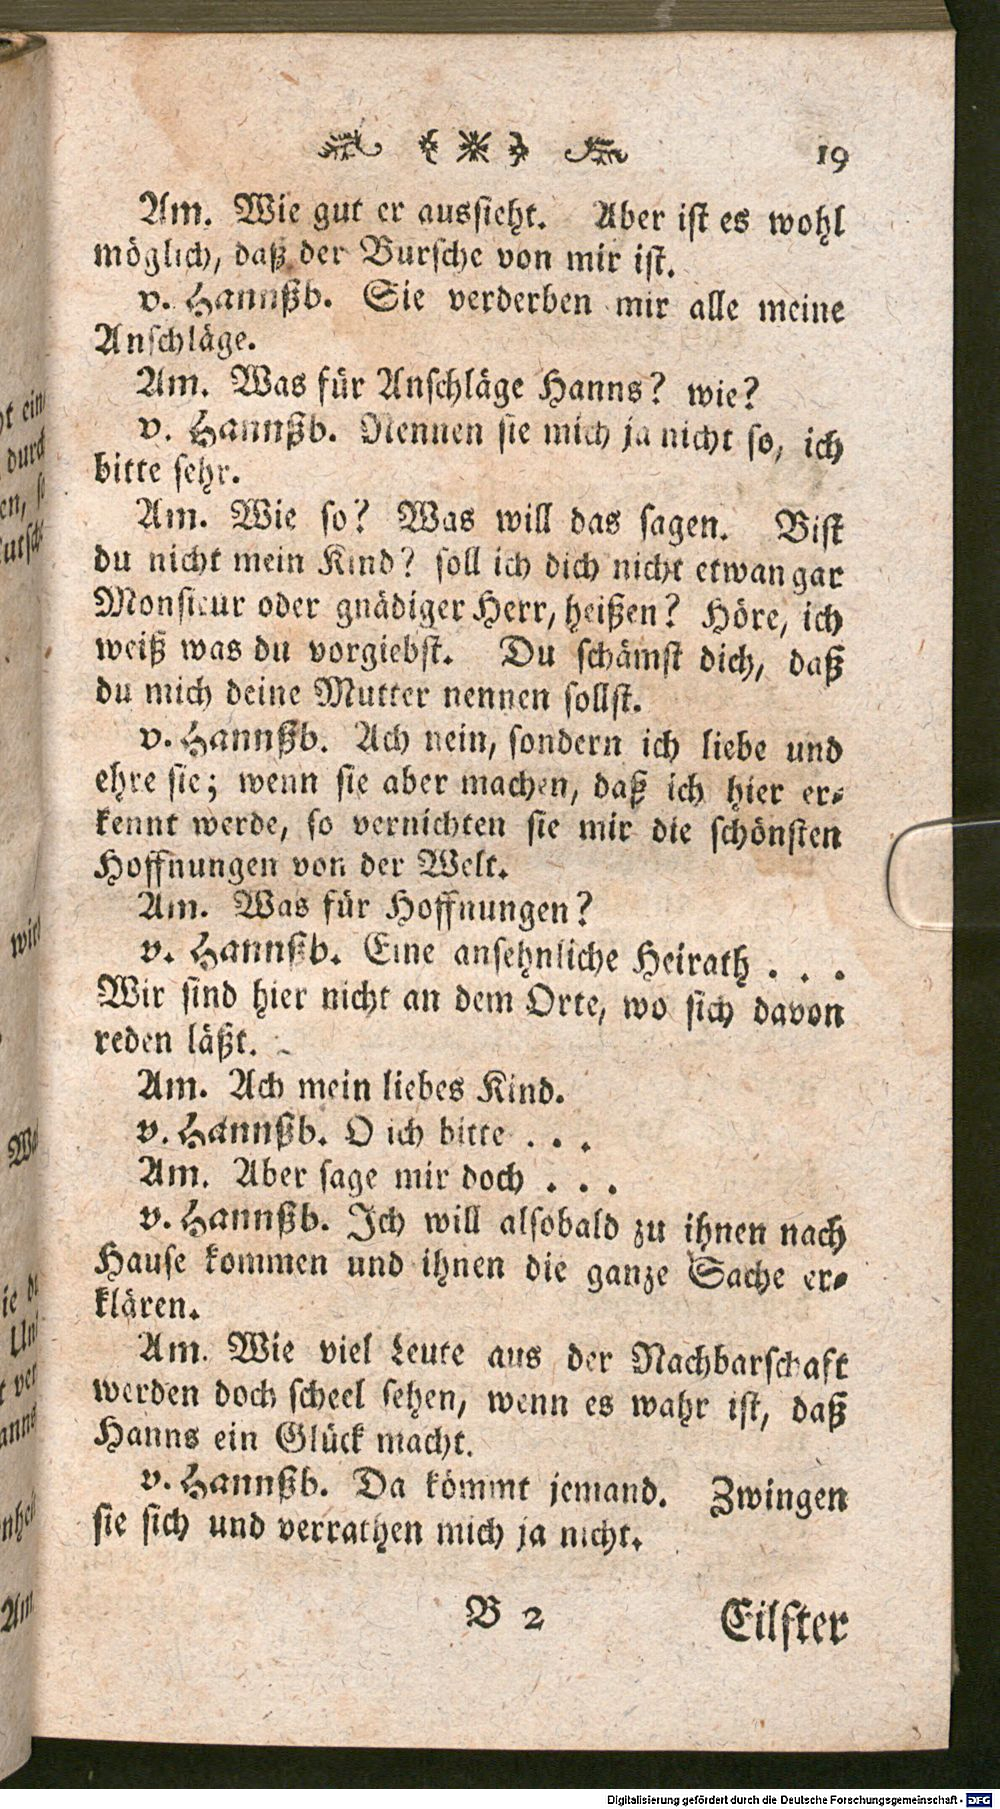 19
Am. Wie gut er aussieht. Aber ist es wohl
möglich, daß der Bursche von mir ist.
v. Hannßb. Sie verderben mir alle meine
Anschläge.
Am. Was für Anschläge Hanns? wie?
v. Hannßb. Nennen sie mich ja nicht so, ich
bitte sehr.
Am. Wie so? Was will das sagen. Bist
du nicht mein Kind? soll ich dich nicht etwan gar
Monsieur oder gnädiger Herr, heißen? Höre, ich
weiß was du vorgiebst. Du schämst dich, daß
du mich deine Mutter nennen sollst.
v. Hannßb. Ach nein, sondern ich liebe und
ehre sie; wenn sie aber machen, daß ich hier er-
kennt werde, so vernichten sie mir die schönsten
Hoffnungen von der Welt.
Am. Was für Hoffnungen?
v. Hannßb. Eine ansehnliche Heirath . . .
Wir sind hier nicht an dem Orte, wo sich davon
reden läßt.
Am. Ach mein liebes Kind.
v. Hannßb. O ich bitte . . .
Am. Aber sage mir doch . . .
v. Hannßb. Ich will alsobald zu ihnen nach
Hause kommen und ihnen die ganze Sache er-
klären.
Am. Wie viel Leute aus der Nachbarschaft
werden doch scheel sehen, wenn es wahr ist, daß
Hanns ein Glück macht.
v. Hannßb. Da kömmt jemand. Zwingen
sie sich und verrathen mich ja nicht.
B 2 Eilfter
Digitalisierung gefördert durch die Deutsche Forschungsgemeinschaft - DFG